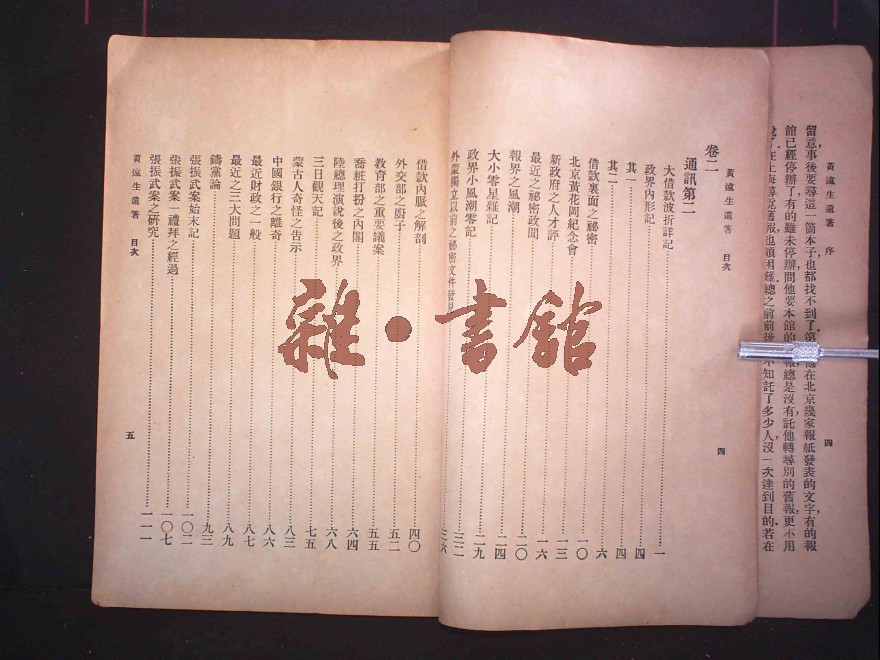 黃遠生遺著 序
四
留意事後要尋這一箇本子也都找不到了第
他在北京幾家報紙發表的文字有的報
館已經停辦了有的雖未停辦問他要本館的
報總是沒有託他轉尋別的舊報更不用
在上海尋
舊報也頗困難總之前前後
不知託了多少人沒一次達到目的若在
黃遠生遺著 目次
四
卷二
通訊第二
大借款波折詳記 一
政界內形記 四
其一 四
其二 六
借款裏面之祕密 六
北京黃花岡紀念會 一〇
新政府之人才評 一三
最近之祕密政聞 一六
報界之風潮 二〇
大小零星雜記 二四
政界小風潮零記 二九
外蒙獨立以前之祕密文件發 三二
三六
借款內脈之解剖 四〇
外交部之廚子 五二
教育部之重要議案 五五
喬粧打扮之內閣 六四
陸總理演說後之政界 六八
三日觀天記 七五
蒙古人奇怪之告示 八三
中國銀行之離奇 八六
最近財政之一般 八七
最近之三大問題 八九
鑄黨論 九三
張振武案始末記 一〇二
張振武案一禮拜之經過 一〇七
張振武案之研究 一一一
黃遠生遺著 目次
五
雜·書館